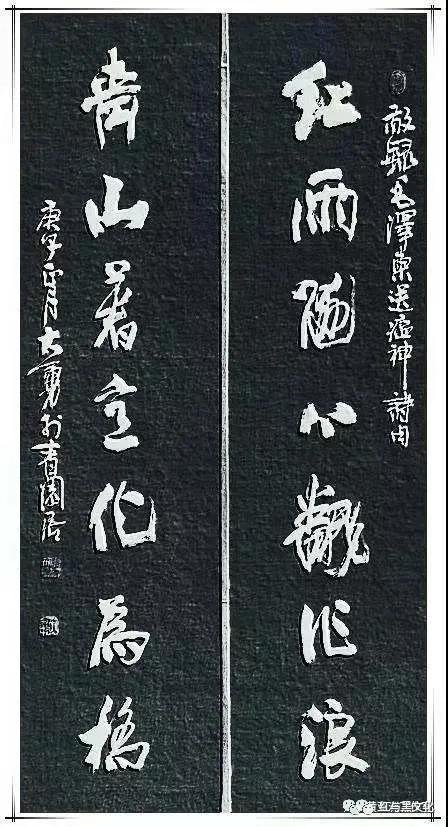 敬錄毛澤東送瘟神詩句
红雨隨心翻作浪
青山着意化為橋
庚子正月大勇於園居
红与黑文化